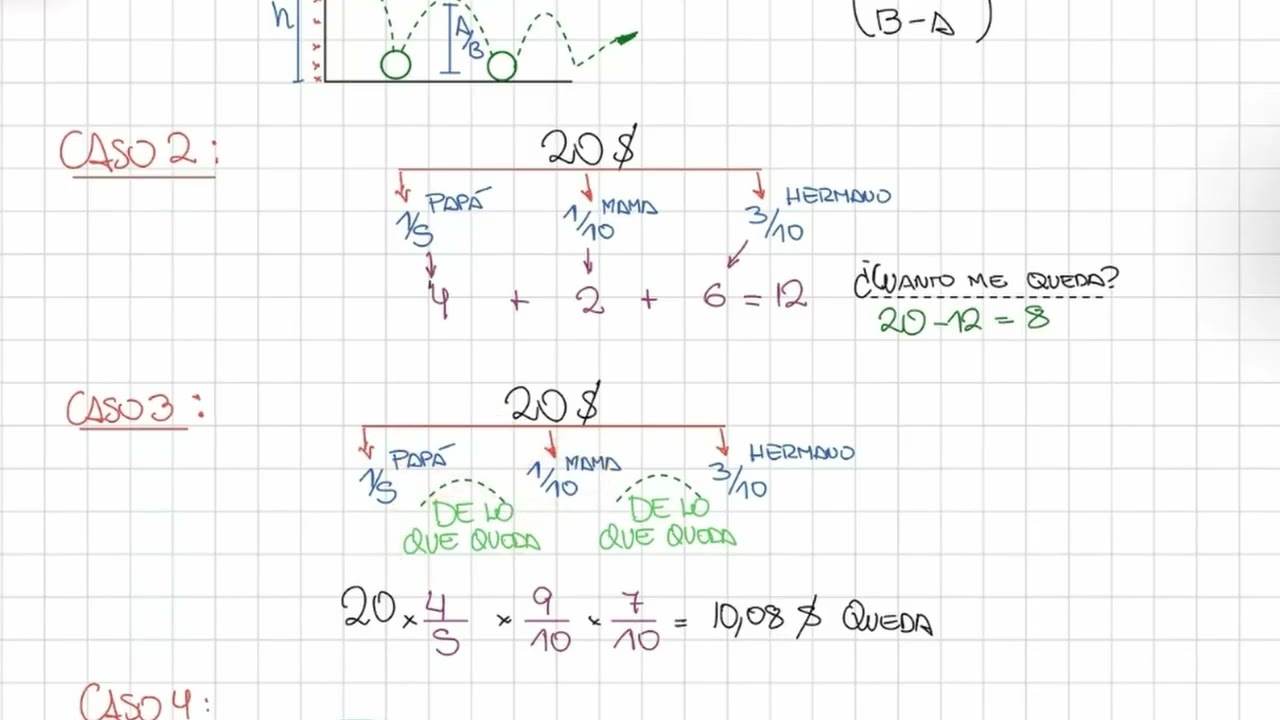 h
A/B
(B-A)
CASO 2:
20 $
1/5 PAPÁ
1/10 MAMA
3/10 HERMANO
4 + 2 + 6 = 12
¿CUANTO ME QUEDA?
20 - 12 = 8
CASO 3:
20 $
1/5 PAPÁ
1/10 MAMA
3/10 HERMANO
DE LO
QUE QUEDA
DE LO
QUE QUEDA
20 × 4/5 × 9/10 × 7/10 = 10,08 $ QUEDA
CASO 4: